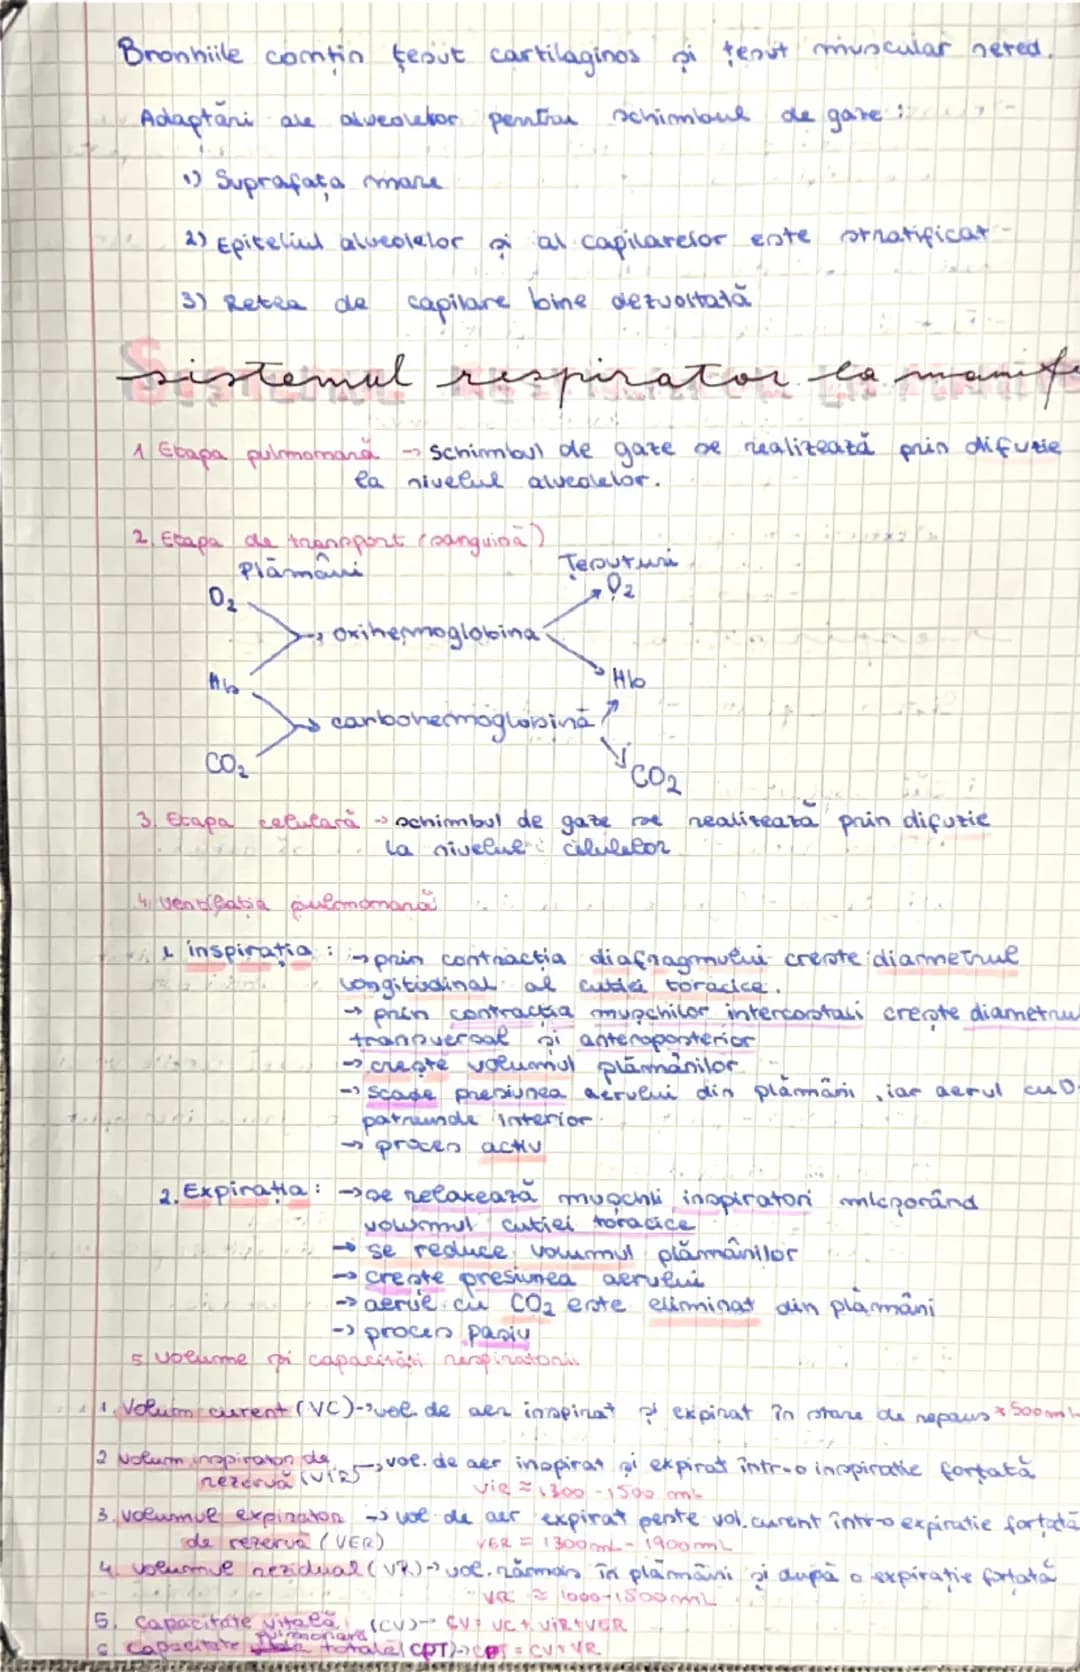 Bronhiile comțin țesut cartilaginos și țesut muscular neted.
Adaptări ale alveolelor pentru schimbul de gaze:
1) Suprafața mare
2) Epiteliul alveolelor și al capilarelor este stratificat
3) Retea de capilare bine dezvoltată
sistemul respirator la mamife
1 Etapa pulmomară → Schimbul de gaze se realizează prin difuzie
la nivelul alveolelor.
2. Etapa de transport (sanguină)
Plămâni Țesuturi
O2 O2
→ oxihemoglobina
Hb Hb
→ carbohemoglobină
CO2 CO2
3. Etapa celulară → schimbul de gaze se realizează prin difuzie
la nivelul celulelor
4. Ventilația pulmomară
1. inspirația : → prin contracția diafragmului crește diametrul
longitudinal al cutiei toracice.
→ prin contracția mușchilor intercostali crește diametrul
transversal și anteroposterior
→ crește volumul plămânilor
→ Scade presiunea aerului din plămâni, iar aerul cu O
patrunde interior
→ proces activ
2. Expirația: → se relaxează mușchii inspiratori micșorând
volumul cutiei toracice
→ se reduce volumul plămânilor
→ crește presiunea aerului
→ aerul cu CO2 este eliminat din plămâni
→ proces pasiv
5 volume și capacități respiratorii
1. Volum curent (VC) → vol. de aer inspirat și expirat în stare de repaus ≈ 500mL
2 volum inspirator de → vol. de aer inspirat și expirat într-o inspiratie forțată
rezervă (VIR) VIR ≈ 1300 - 1500 mL
3. volumul expirator → vol. de aer expirat peste vol. curent într-o expiratie forțată
de rezervă (VER) VER = 1300mL - 1900mL
4. volumul rezidual (VR) → vol. rămas în plămâni și după o expirație forțată
VR ≈ 1000-1500mL
5. Capacitate vitală (CV) → CV = VC + VIR + VER
6. Capacitate pulmonară totală (CPT) → CPT = CV + VR